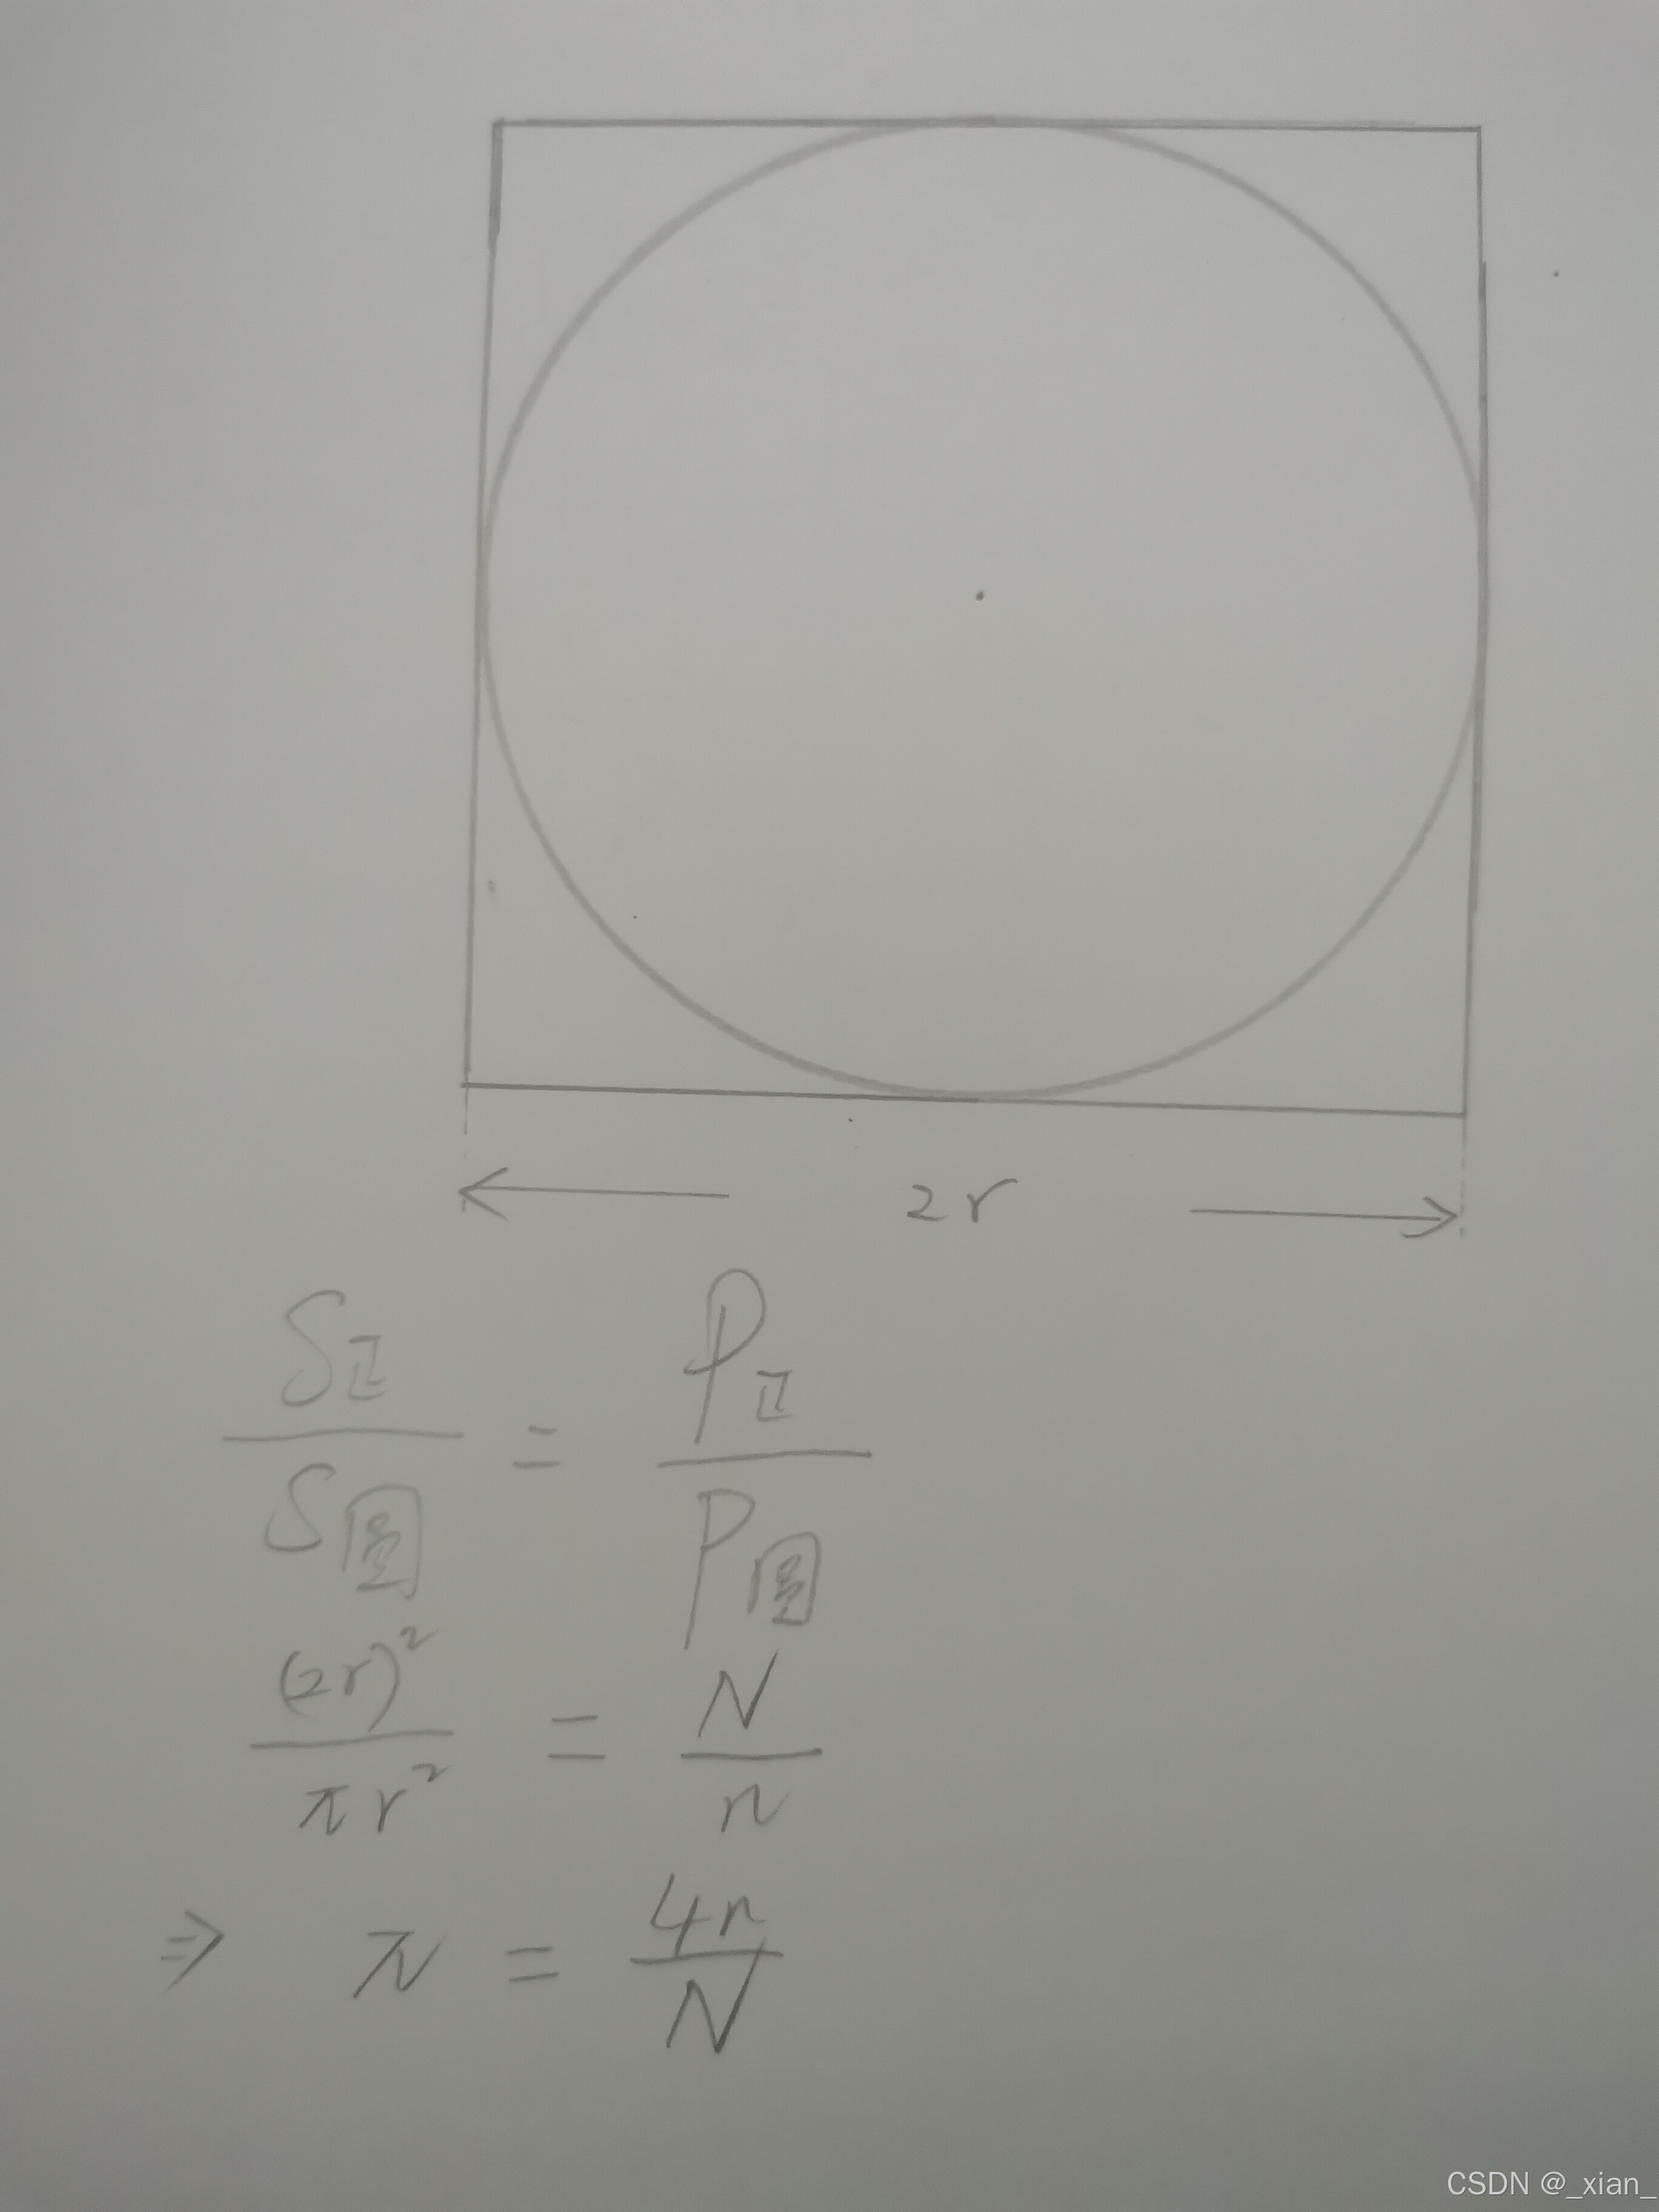 2r
S正/S圆 = P正/P圆
(2r)²/πr² = N/n
⇒ π = 4n/N
CSDN @_xian_